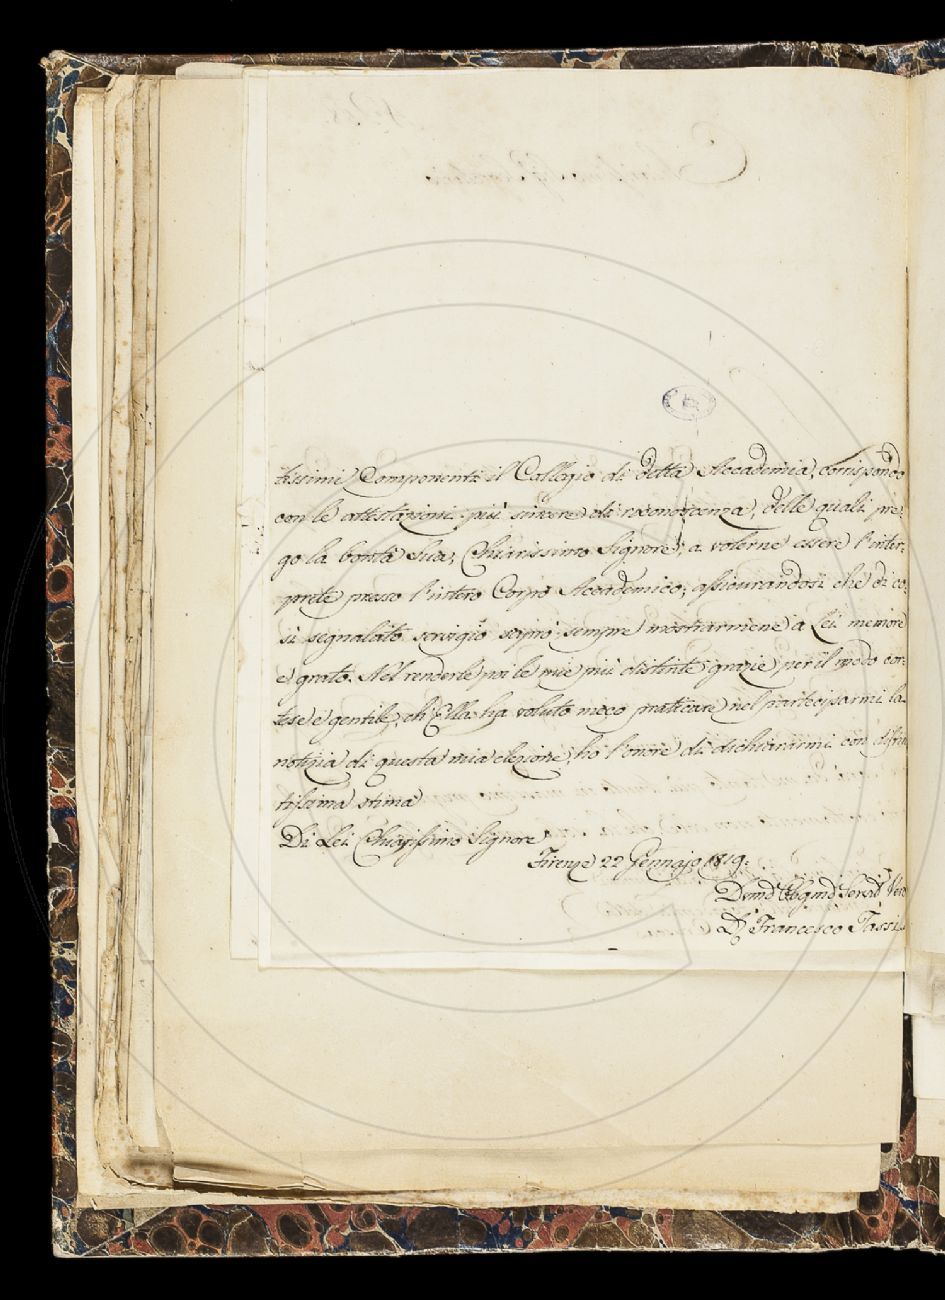 tissimi Componenti il Collegio di detta Accademia, corrispondo
con le attestazioni più sincere di riconoscenza, delle quali pre=
go la bontà Sua, Chiarissimo Signore, a volerne essere l'inter=
prete presso l'intero Corpo Accademico; assicurandosi che di co=
sì segnalato servigio saprò sempre mostrarmene a Lei memore
e grato. Nel renderle poi le mie più distinte grazie per il modo cor=
tese e gentile, ch'Ella ha voluto meco praticare nel parteciparmi la
notizia di questa mia elezione, ho l'onore di dichiararmi con distin
tissima stima
Di Lei Chiarissimo Signore
Firenze 22 Gennajo 1819.
Devmo Obgmo Servo Vero
Dr Francesco Tassi